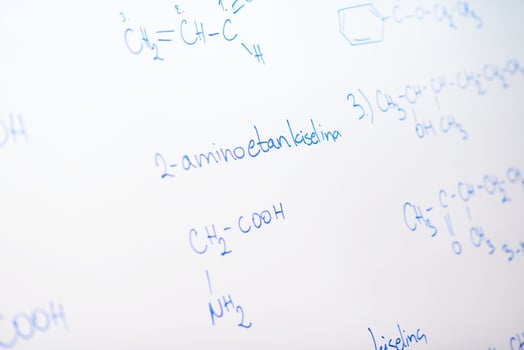 3. 2. 1.
CH₂=CH-C
H
C-O-CH₂CH₃
OH
3.) CH₃-CH-CH-CH₂-CH₂-CH₃
OH CH₃
2-aminoetankiselina
CH₂-COOH
NH₂
CH₃-C-CH-CH₂-CH₃
O CH₃
3-
COOH
kiselina